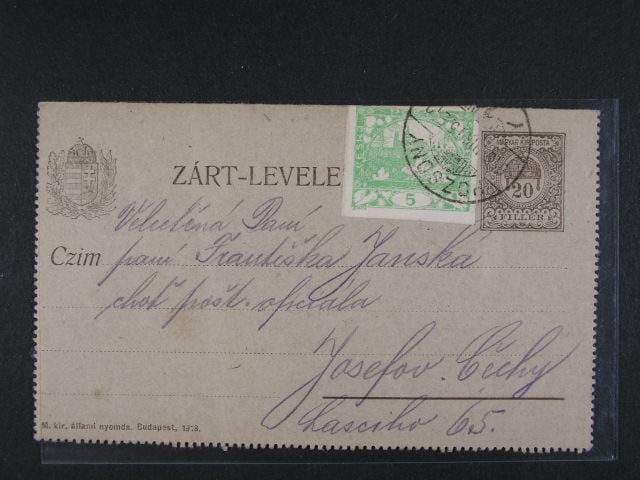 ZÁRT-LEVELE
MAGYAR KIR. POSTA
20
FILLÉR
5
POZSONY
Velectěná Paní
Czim paní Františka Janská
choť pošt. oficiála
Josefov. Čechy
Lasciho 65.
M. kir. állami nyomda. Budapest, 1918.